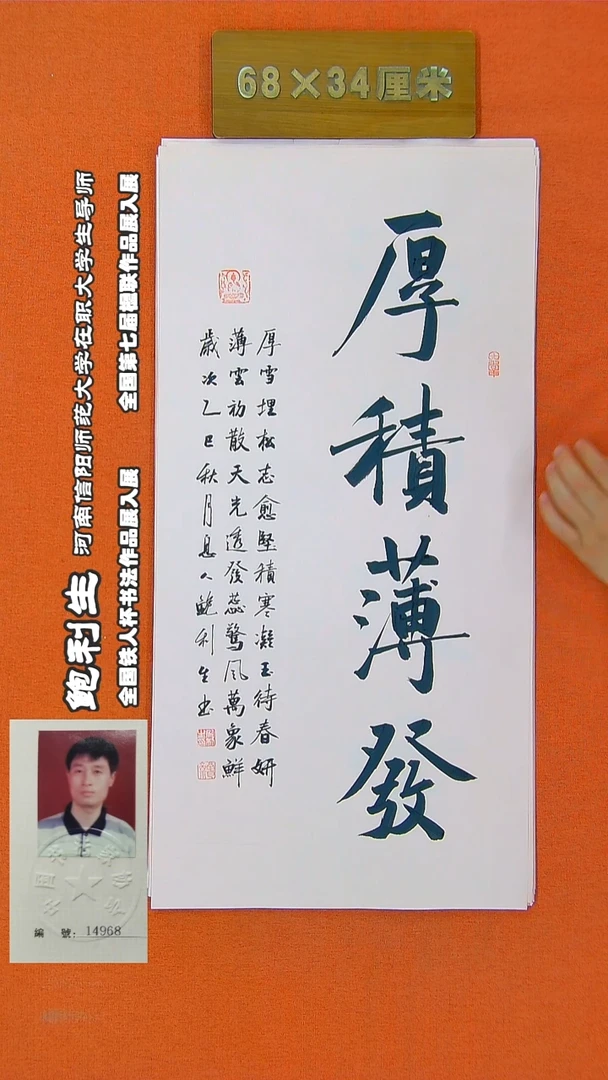 68×34厘米
厚積薄發
厚雪埋松志愈堅積寒凝玉待春妍
薄雲初散天光透發蕊驚風萬象鮮
歲次乙巳秋月息人鮑利生书
鲍利生 河南信阳师范大学在职大学生导师
全国铁人杯书法作品展入展 全国第七届楹联作品展入展
編號:14968